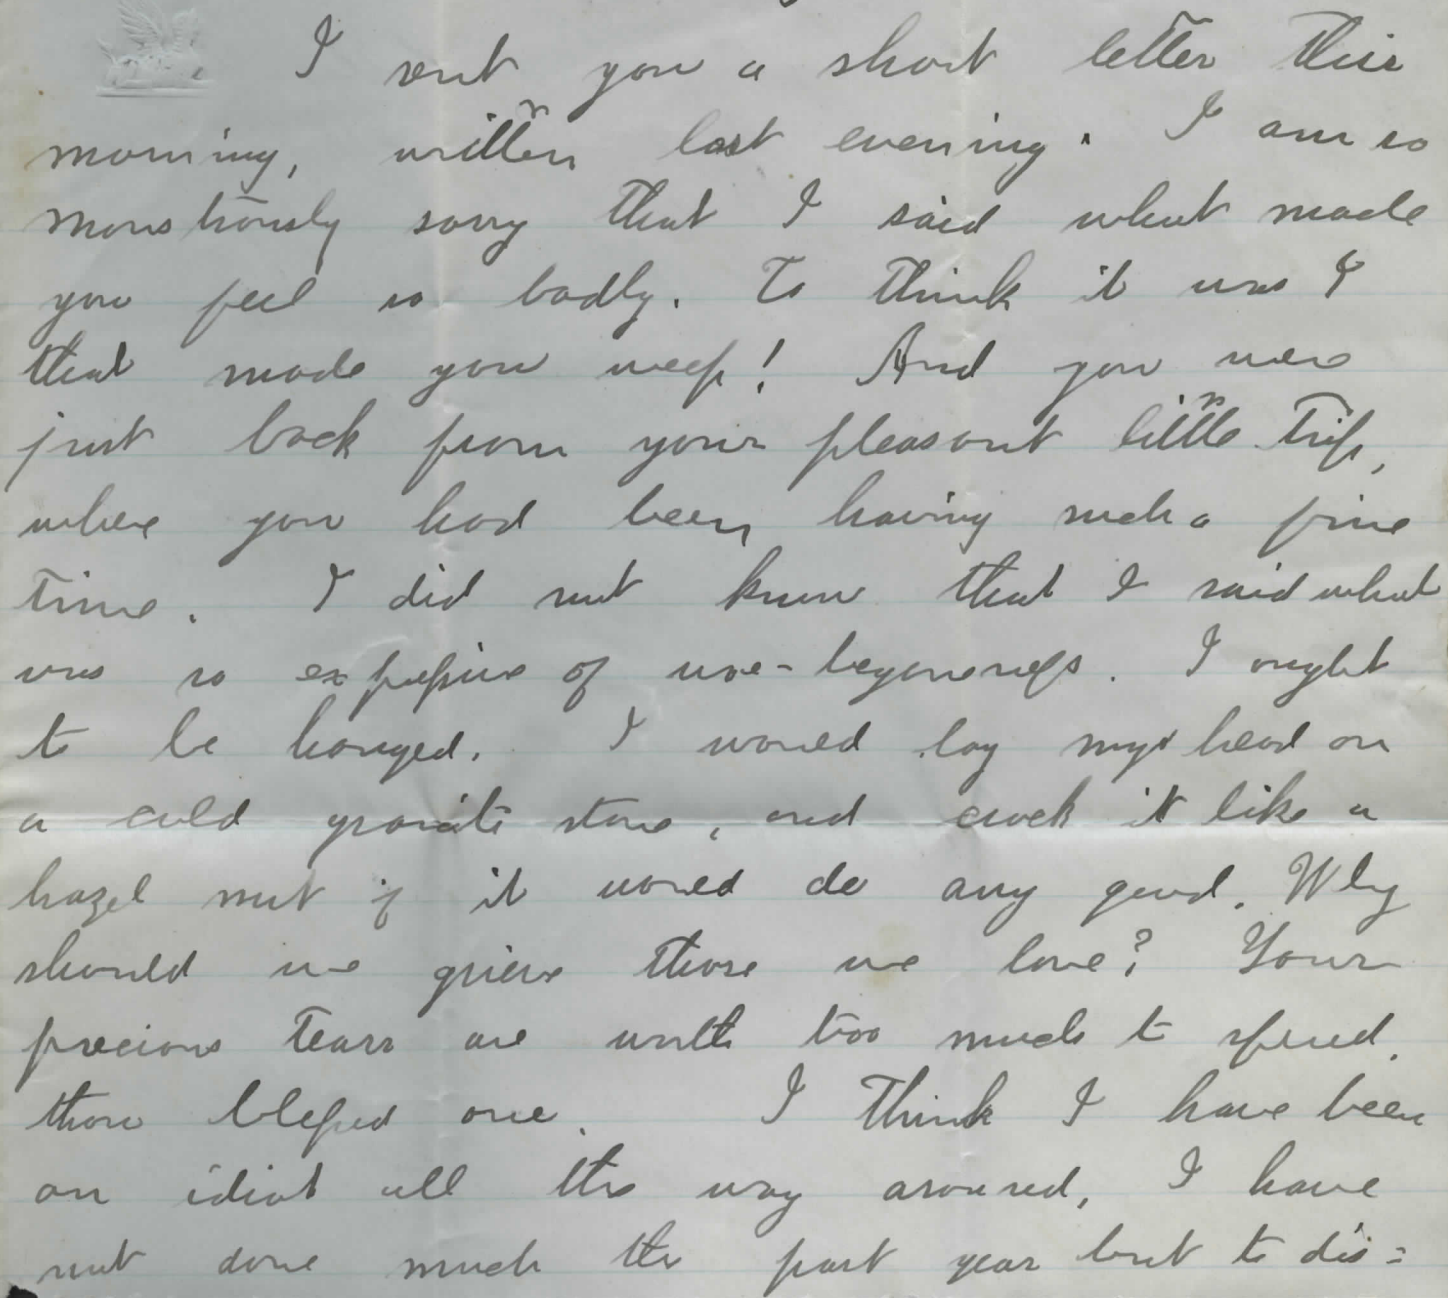 I sent you a short letter this
morning, written last evening. I am so
monstrously sorry that I said what made
you feel so badly. To think it was I
that made you weep! And you were
just back from your pleasant little trip,
where you had been having such a fine
time. I did not know that I said what
was so expressive of woe-begoneness. I ought
to be hanged. I would lay my head on
a cold granite stone, and crack it like a
hazel nut if it would do any good. Why
should we grieve those we love? Your
precious tears are worth too much to spend,
thou blessed one. I think I have been
an idiot all the way around, I have
not done much the past year but to dis=